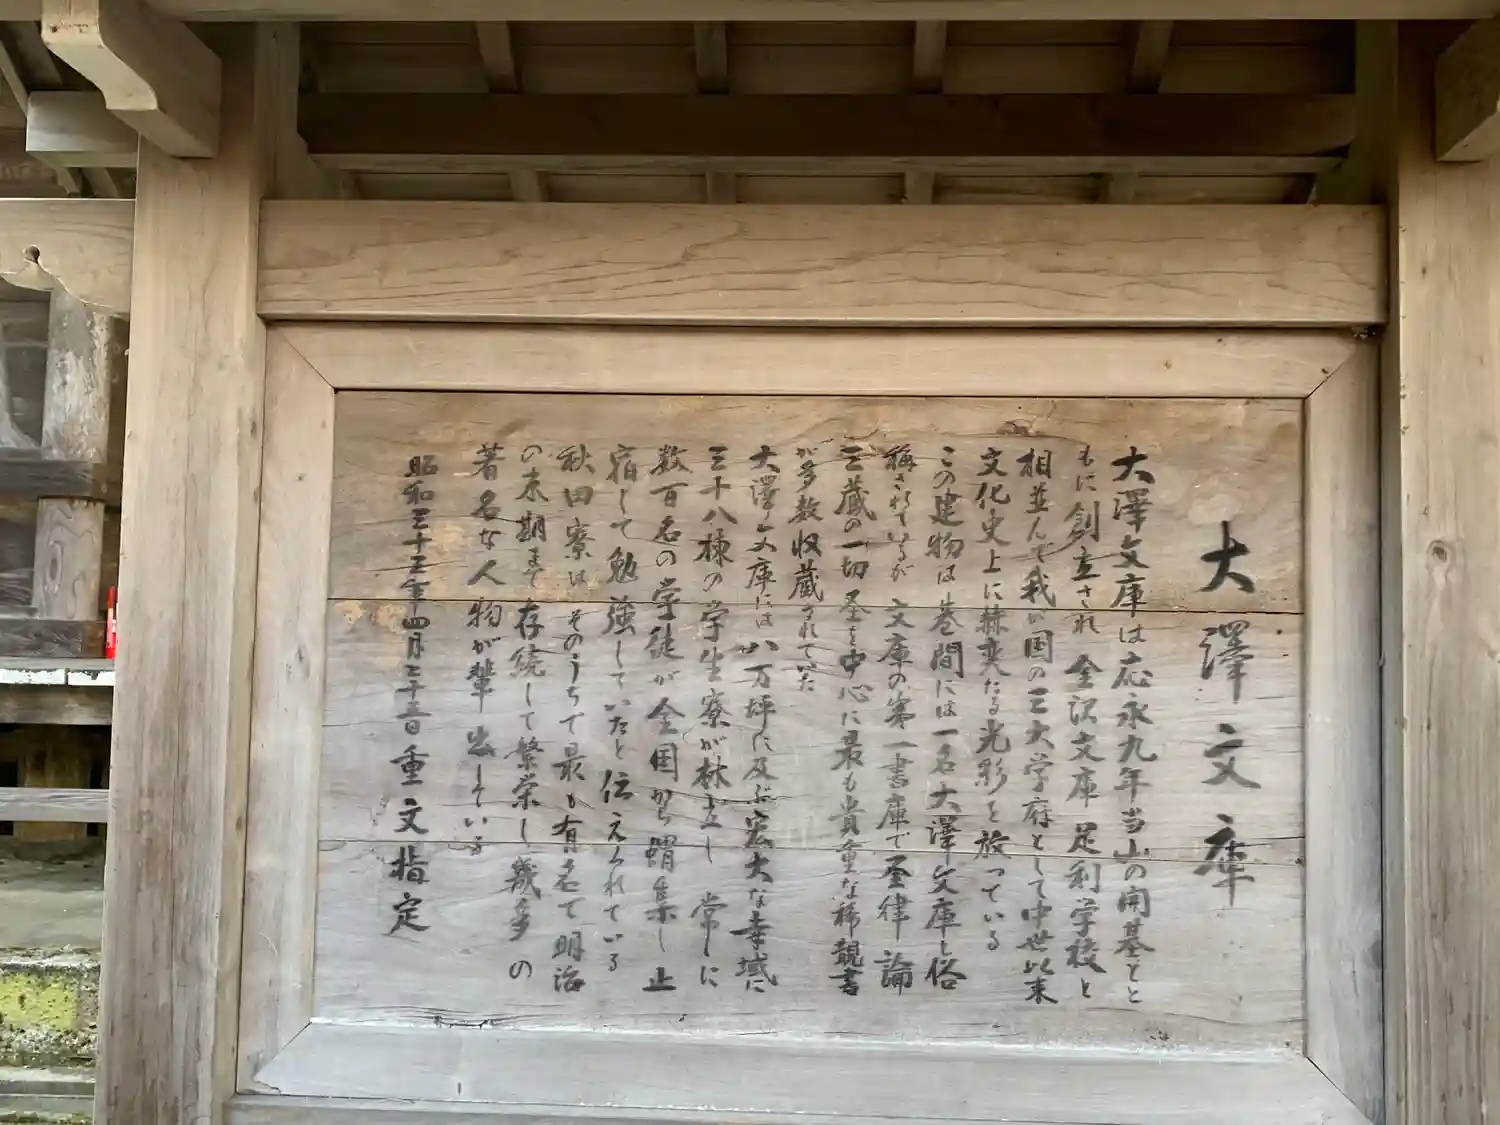 大澤文庫
大澤文庫は応永九年当山の開基とと
もに創立され 金沢文庫 足利学校と
相並んで我が国の三大学府として中世以来
文化史上に赫奕たる光彩を放っている
この建物は巷間には一名大澤文庫と俗
称されているが 文庫の第一書庫で経律論
三蔵の一切経を中心に最も貴重な稀覯書
が多数収蔵されていた
大澤文庫には八万坪に及ぶ宏大な寺域に
三十八棟の学生寮が林立し 常に
数百名の学徒が全国から蝟集し止
宿して勉強していたと伝えられている
秋田寮は そのうちで最も有名で明治
の末期まで存続して繁栄し幾多の
著名な人物が輩出している
昭和三十三年四月二十五日重文指定